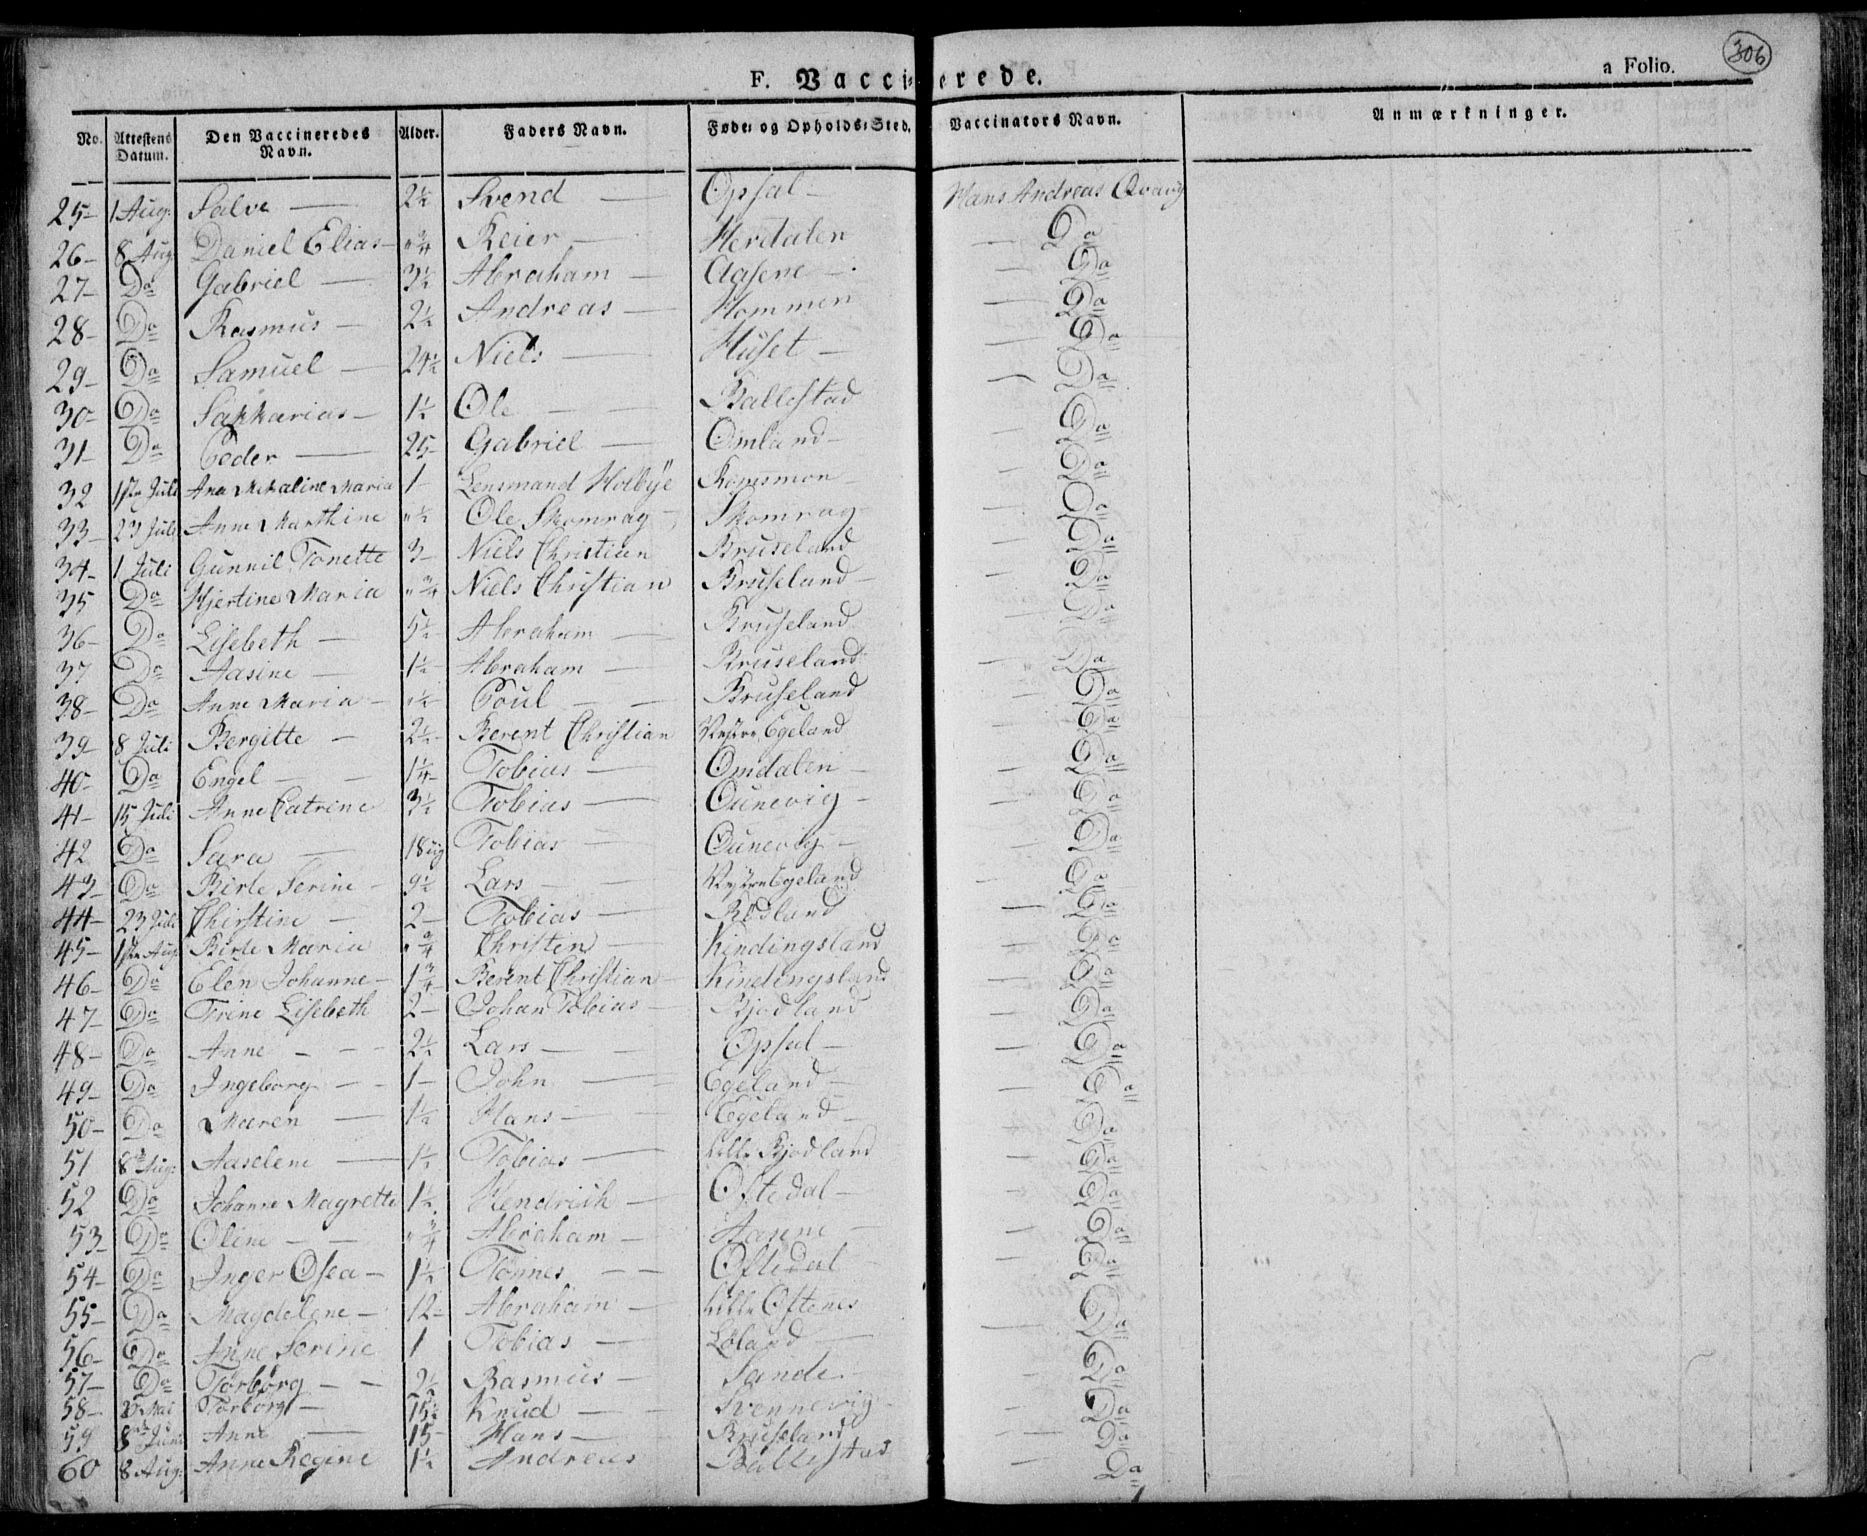 306
F. Vaccinerede. a Folio.
No. Attestens Datum. Den Vaccineredes Navn. Alder. Faders Navn. Føde- og Opholds-Sted. Vaccinators Navn. Anmærkninger.
25- 1 Aug: Salve — 2½ Svend — Opsal — Hans Andreas Qvavig
26- 8 Aug: Daniel Elias - " ¾ Reier — Herdalen — Do
27- Do Gabriel — 3½ Abraham — Aasene — Do
28- Do Rasmus — 2½ Andreas — Hommen — Do
29- Do Samuel — 24½ Niels — Huset — Do
30- Do Sakkarias — 1½ Ole — Ballestad — Do
31- Do Peder — 25- Gabriel — Omland — Do
32 1ste Juli Ana Mikaline Maria 1- Lensmand Holbye Konsmon — Do
33- 23 Juli Anne Marthine " ½ Ole Skomrag — Skomrag — Do
34- 1 Juli Gunnil Tonette 3- Niels Christian Bruseland — Do
35 Do Kjertine Maria " ¾ Niels Christian Bruseland — Do
36- Do Lisebeth — 5½ Abraham — Bruseland — Do
37 Do Aasine — 1½ Abraham — Bruseland — Do
38- Do Anne Maria - " ½ Poul — Bruseland — Do
39- 8 Juli Bergitte — 2½ Berent Christian Vestre Egeland — Do
40- Do Engel — 1¼ Tobias — Omdalen — Do
41- 15 Juli Anne Catrine 3½ Tobias — Ounevig — Do
42 Do Sara — 18 ug Tobias — Ounevig — Do
43- Do Birte Serine - 9½ Lars — Vestre Egeland — Do
44- 23 Juli Chirstine — 2- Tobias — Rødsland — Do
45- 1ste Aug: Birte Maria " ¾ Christen — Kindingsland — Do
46- Do Elen Johanne - 1¾ Berent Christian — Kindingsland — Do
47- Do Trine Lisebeth 2- Johan Tobias — Bjodland — Do
48- Do Anne — 2½ Lars — Opsal — Do
49- Do Ingeborg — 1- John — Egeland — Do
50- Do Maren — 1½ Hans — Egeland — Do
51 8 Aug: Aaselene — 1½ Tobias — Lille Bjodland — Do
52 Do Johanne Magrette 1½ Hendrich — Oftedal — Do
53- Do Oline — " ¾ Abraham — Aasene — Do
54- Do Inger Osea — 1½ Tønnes — Oftedal — Do
55- Do Magdelene — 12- Abraham — Lille Oftenes — Do
56- Do Anne Serine 1 Tobias — Løland — Do
57- Do Torborg — 2½ Rasmus — Sande — Do
58- Mai Torborg — 15½ Knud — Svennevig — Do
59 8 Juni Anne — 15- Hans — Bruseland — Do
60 8 Aug: Anne Regine 1½ Andreas Ballestad — Do